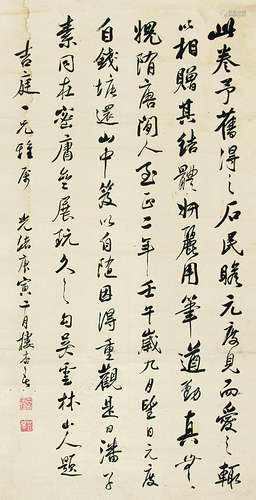 此卷予舊得之石民瞻元度見而愛之輒
以相贈其結體妍麗用筆遒勁真無
愧隋唐間人至正二年壬午歲九月望日元度
自錢塘還山中笈以自隨因得重觀是日潘子
素同在密庵無展玩久之句吳雲林山人題
吉庭一兄雅屬 光緒庚寅二月樓